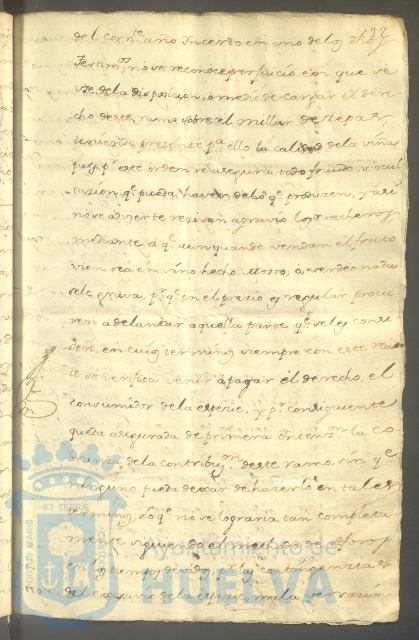 22
del corr.te año yncerto en uno de los dhos
Testim.s no se reconoce perjuicio en que se
use de la disposicion, o medio de cargar el dere-
cho de este ramo sobre el millar de zepas,
teniendo presente p.a ello la calidad de la viñas
pues p.r este orden se asegura todo fraude, y ocul-
tacion q.e pueda haver en de lo q.e produzen, y asi
no se advierte resivan agravio los cosecheros
mediante á q.e aun quando vendan el fruto
vien sea en vino hecho, mosto, o, verdeo nada
se les grava, p.r q.e en el presio es regular procu-
ren adelantar aquella parte q.e se les consi-
dere, en cuios terminos siempre con este
se verifica venir á pagar el derecho, el
consumidor de la especie, y p.r consiguiente
queda asegurada de primera intenz.on la co-
branza de la contribuz.on de este ramo, sin q.e
ninguno pueda dexar de hazerlo en tales
terminos, lo q.e no se lograria tan completa-
mente siguiendo el metodo de aforos
en los tiempos devidos, p.r las contingencias
del extravio de la especie, mala versazion
PORTUS MARIS ET TERRE CUSTODIA
Ayuntamiento de
HUELVA